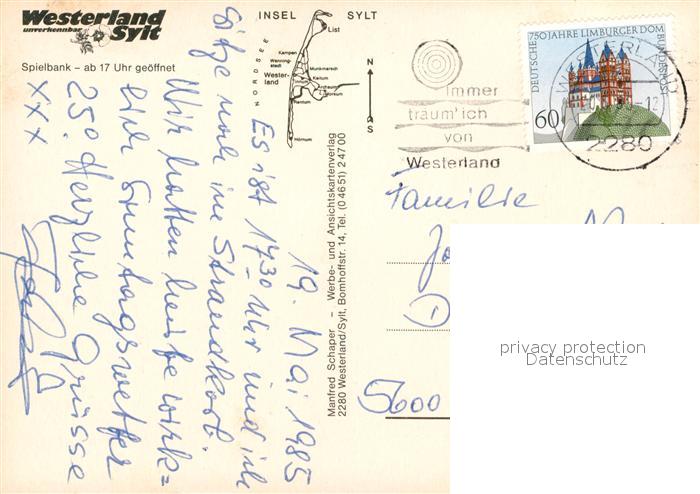 Westerland
unverkennbar Sylt
Spielbank – ab 17 Uhr geöffnet
INSEL SYLT
NORDSEE
List
Kampen
Wenning-
stedt
Munkmarsch
Wester-
land
Keitum
Rantum
Hörnum
N
S
Immer
traum' ich
von
Westerland
DEUTSCHE BUNDESPOST
750 JAHRE LIMBURGER DOM
60
2280
19. Mai 1985
Es ist 17³⁰ Uhr und ich
sitze noch im Strandkorb.
Wir hatten heute wirk=
lich Sonntagswetter
25°. Herzliche Grüsse
xxx
Manfred Schaper – Werbe- und Ansichtskartenverlag
2280 Westerland/Sylt, Bomhoffstr. 14, Tel. (0 46 51) 2 47 00
Familie
5600
privacy protection
Datenschutz